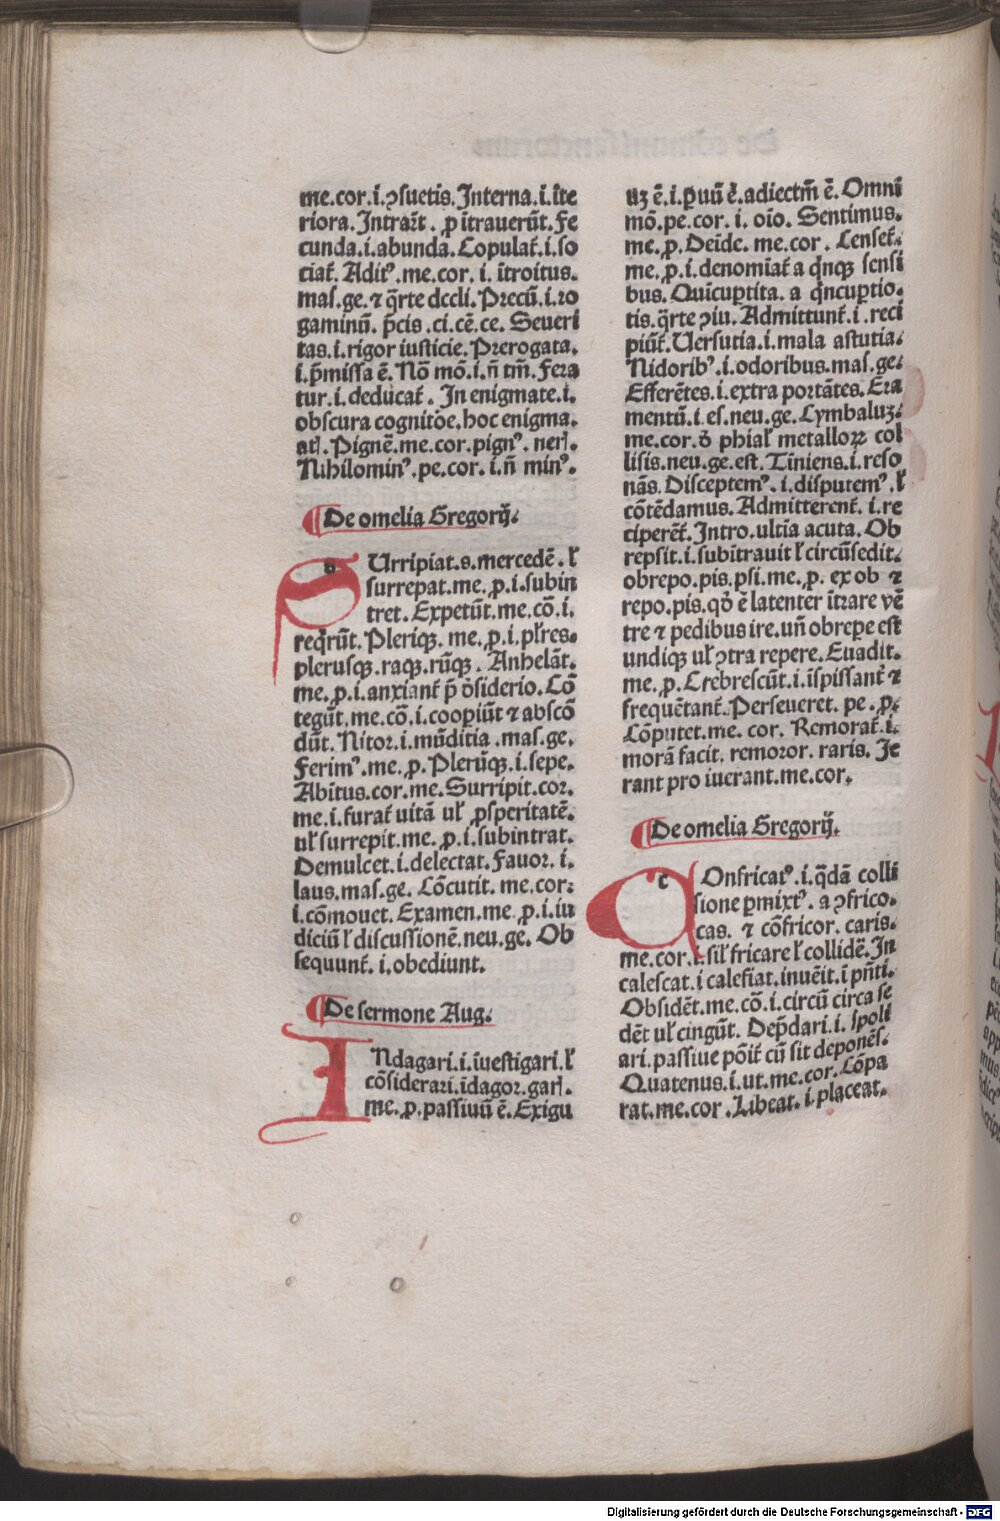 me.cor.i.ꝯsuetis.Interna.i.īte
riora.Intrar̄t. ꝓ ītrauerūt.Fe
cunda.i.abunda.Copulat̄.i.so
ciat̄.Aditꝰ.me.cor.i.ītroitus.
mas.ge.⁊ q̄rte dccli.Precū.i.ro
gaminū. p̄cis.ci.cē.ce. Seueri
tas.i.rigor iusticie.Prerogata.
i.p̄missa ē.Nō mō.i.n̄ tm̄.Fera
tur.i.deducat̄. In enigmate.i.
obscura cognitōe.hoc enigma.
atꝭ.Pignē.me.cor.pignꝰ.nerꝭ.
Nihilominꝰ.pe.cor.i.n̄ minꝰ.
De omelia Gregorij.
SUrripiat.s.mercedē.ł
surrepat.me.ꝓ.i.subin
tret.Expetūt.me.cō.i.
req̄rūt.Pleriqꝫ.me.ꝓ.i.pl̄res.
plerusqꝫ.raqꝫ.rūqꝫ.Anhelāt.
me.ꝓ.i.anxiant̄ p̄ ꝺ̄siderio.Cō
tegūt.me.cō.i.cooꝑiūt ⁊ abscō
dūt.Nitor.i.mūditia.mas.ge.
Ferimꝰ.me.ꝓ.Plerūqꝫ.i.sepe.
Abitus.cor.me.Surripit.cor.
me.i.furat̄ uitā ul̄ ꝓsperitatē.
ul̄ surrepit.me.ꝓ.i.subintrat.
Demulcet.i.delectat.Fauor.i.
laus.mas.ge. Cōcutit.me.cor:
i.cōmouet.Examen.me.ꝓ.i.iu
diciū ł discussionē.neu.ge. Ob
sequunt̄.i.obediunt.
De sermone Aug.
INdagari.i.īuestigari.ł
cōsiderari.īdagor.garꝭ.
me.ꝓ.passiuū ē.Exigu
uꝫ ē.i.ꝑuū ē.adiectm̄ ē.Omni
mō.pe.cor.i.oīo.Sentimus.
me.ꝓ.Deīdc.me.cor.Censet̄.
me.ꝓ.i.denomīat̄ a q̄nqꝫ sensi
bus.Quīcuꝑtita. a q̄ncuꝑtio.
tis.q̄rte ꝯiu.Admittunt̄.i.reci
piūt̄.Uersutia.i.mala astutia.
Nidoribꝰ.i.odoribus.mas.ge.
Efferētes.i.extra portātes.Era
mentū.i.es.neu.ge.Cymbaluꝫ.
me.cor.ꝺ̄ phial̄ metalloꝝ col
lisis.neu.ge.est.Tīniens.i.reso
nās.Disceptemꝰ.i.disputemꝰ.ł
cōtēdamus.Admitterent̄.i.re
ciperēt̄.Intro.ultīa acuta. Ob
repsit.i.subītrauit ł circūsedit.
obrepo.pis.psi.me.ꝓ. ex ob ⁊
repo.pis.qꝺ̄ ē latenter ītrare vē
tre ⁊ pedibus ire.un̄ obreꝑe est
undiqꝫ ul̄ ꝯtra repere.Euadit.
me.ꝓ.Crebrescūt.i.īspissant̄ ⁊
frequētant̄.Perseueret.pe.ꝓ.
Cōputet.me. cor. Remorat̄.i.
morā facit. remoror. raris. Je
rant pro iuerant.me.cor.
De omelia Gregorij.
COnfricatꝰ.i.q̄dā colli
sione ꝑmixtꝰ.a ꝯfrico.
cas. ⁊ cōfricor. caris.
me.cor.i.sil̄ fricare ł collidē.In
calescat.i calefiat.inuēit.ī pn̄ti.
Obsidēt.me.cō.i.circū circa se
dēt ul̄ cingūt. Dep̄dari.i.spoli
ari.passiue pōit̄ cū sit deponēs.
Quatenus.i.ut.me.cor.Cōpa
rat.me.cor.Libeat.i.placeat.
Digitalisierung gefördert durch die Deutsche Forschungsgemeinschaft - DFG